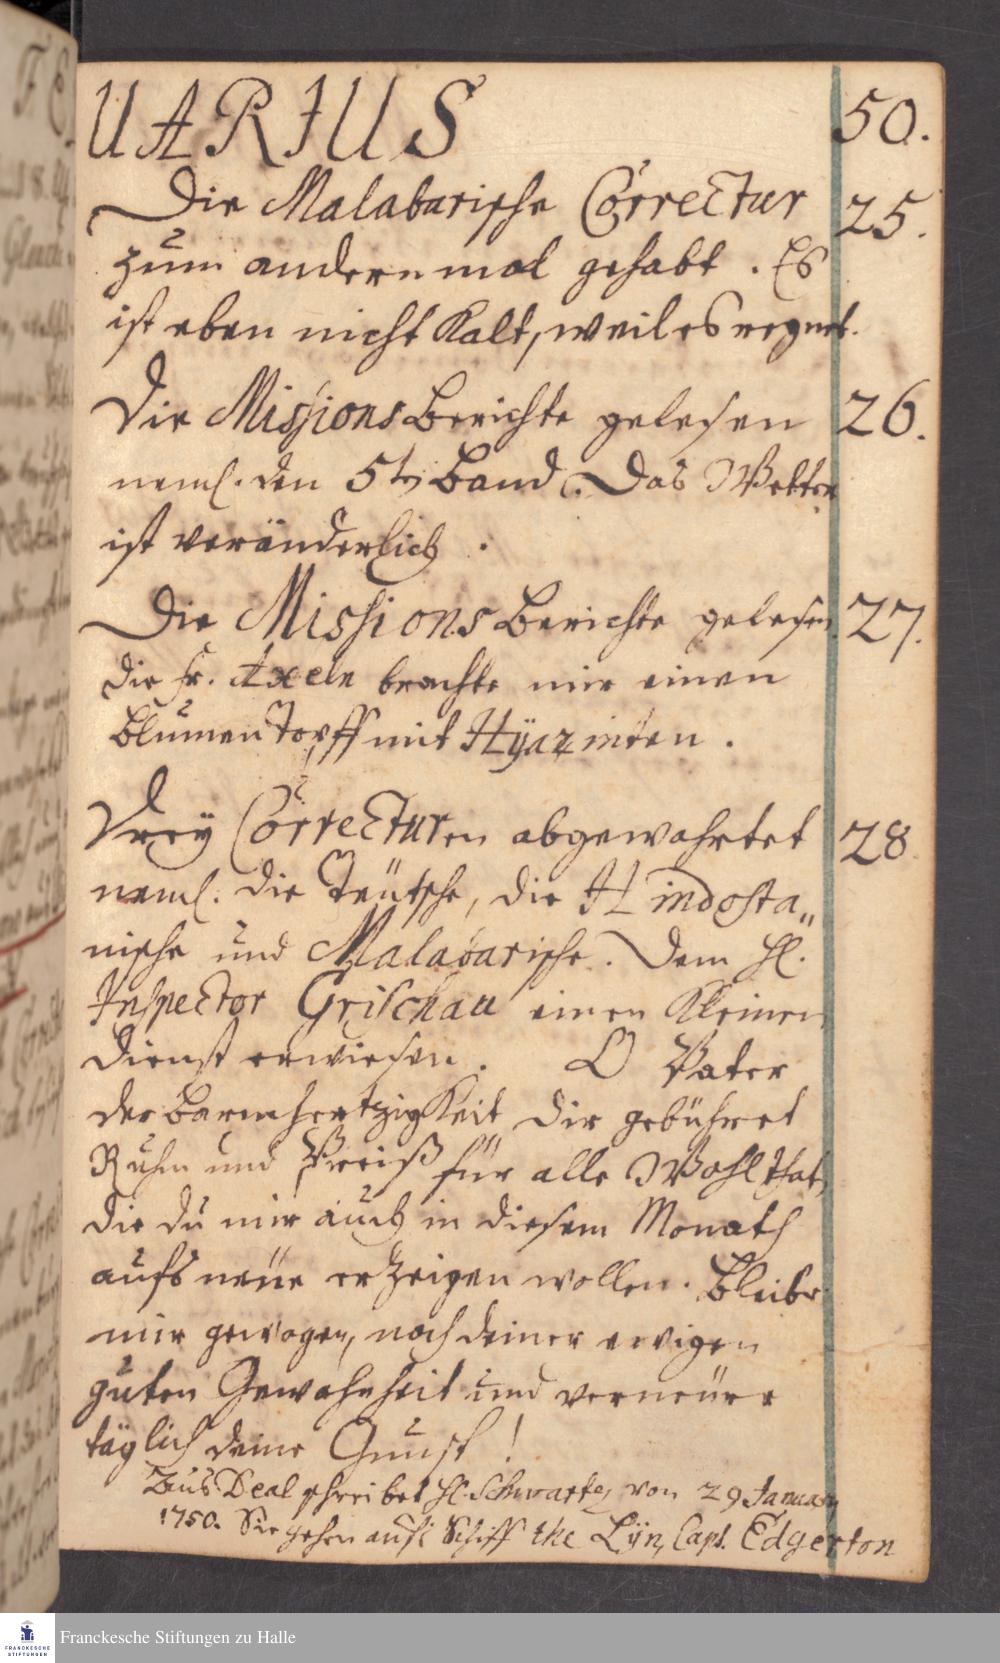 UARIUS 50.
Die Malabarische Correctur 25.
zum andern mal gehabt. Es
ist eben nicht Kalt, weil es regnet.
Die Missions Berichte gelesen 26.
neml. den 5t Band. Das Wetter
ist veränderlich.
Die Missions Berichte gelesen 27.
die Fr. Axeln brachte mir einen
Blumen Topff mit Hÿazinten.
Dreÿ Correcturen abgewahrtet 28
neml. die Teütsche, die Hindosta„
nische und Malabarische. Dem H.
Inspector Grischau einen Kleinen
Dienst erwiesen. O Vater
der Barmhertzigkeit dir gebühret
Ruhm und Preiß für alle Wohlthat,
die du mir auch in diesem Monath
aufs neüe erzeigen wollen. Bleibe
mir gewogen, nach deiner ewigen
guten Gewohnheit und verneüre
täglich deine Gunst!
Aus Deal schreibet H. Schwartz von 29 January
1750. Sie gehen aufs Schiff the Lÿn, Capt. Edgerton
FRANCKESCHE
STIFTUNGEN
Franckesche Stiftungen zu Halle